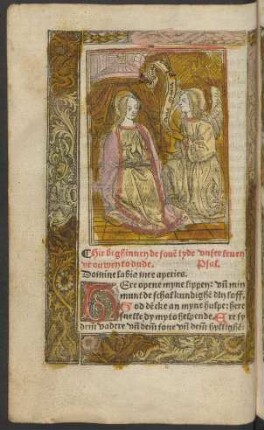 Hir beghinnen de souē tyde vnser leuen
vrouwen to dude. Psal.
Domine labia mea aperies.
HEre opene myne lippen: vn̄ min
munt de schal kundighē dyn loff.
God dēcke an myne hulpe: here
snelle dy my to helpende. Ere sy
dem vadere vn̄ dem sone vn̄ dem hyllighē